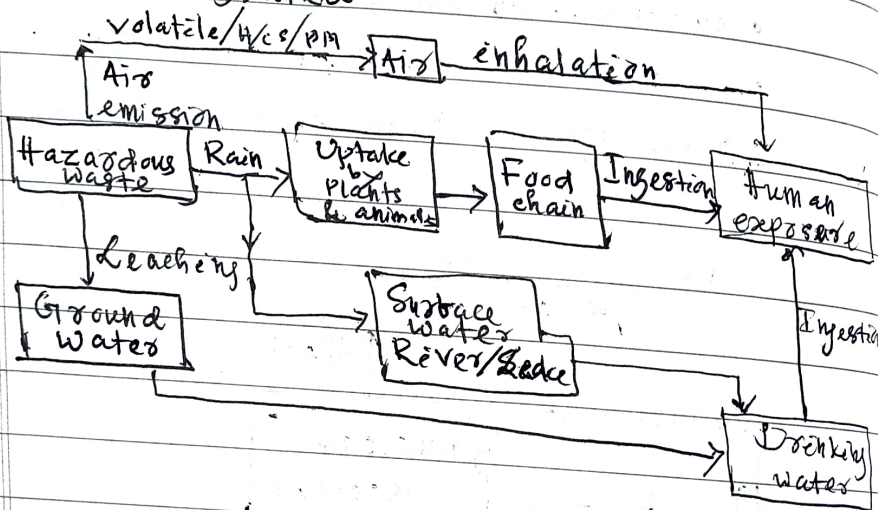 volatile/HCs/PM
Air
inhalation
Air
emission
Hazardous
waste
Rain
Uptake
by
plants
& animals
Food
chain
Ingestion
Human
exposure
Leaching
Ground
water
Surface
water
River/
Ingestio
Drinking
water